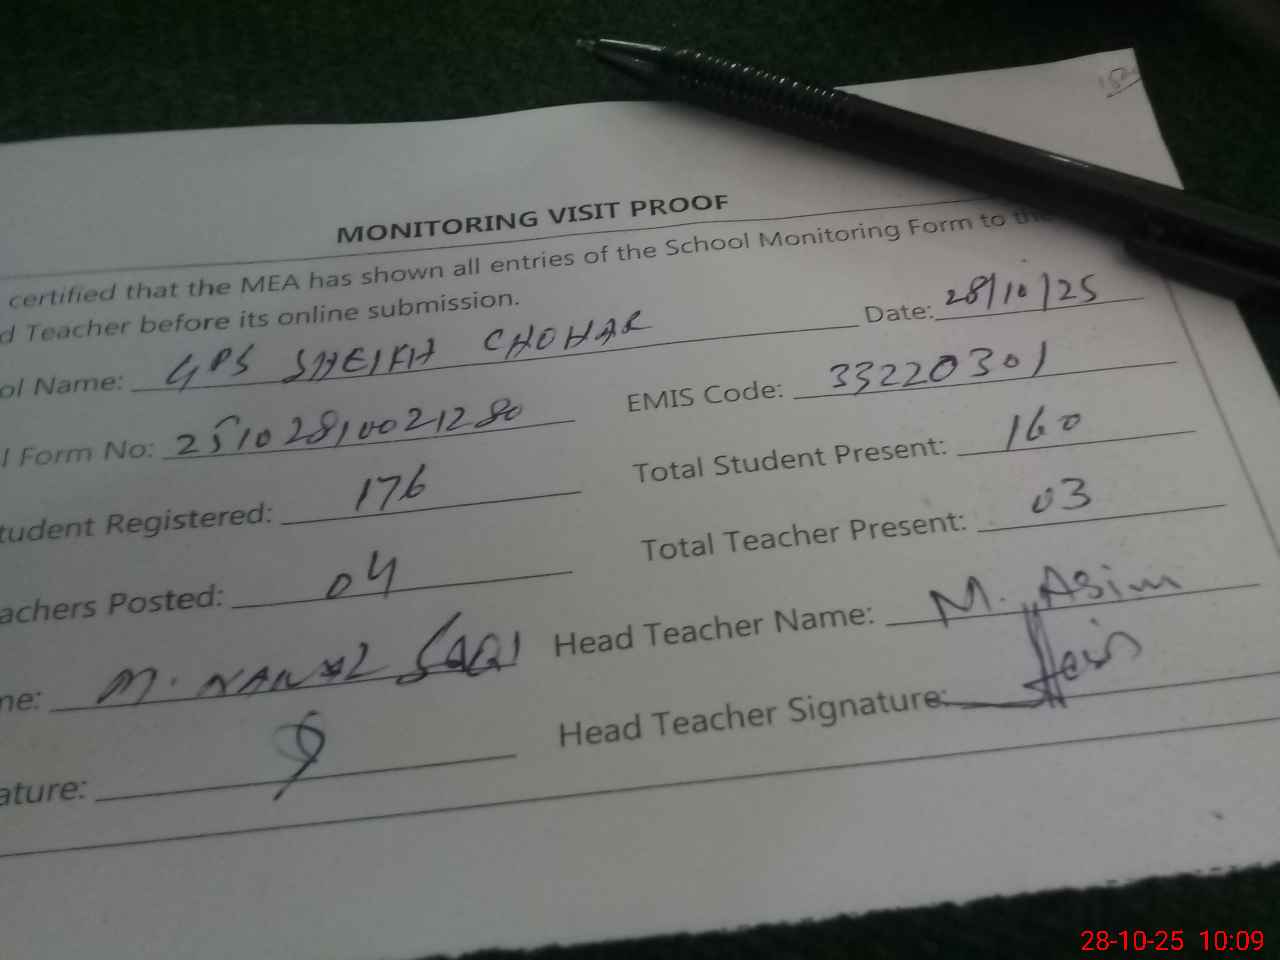 MONITORING VISIT PROOF
certified that the MEA has shown all entries of the School Monitoring Form to the
d Teacher before its online submission.
ol Name: GPS SHEIKH CHOHAR Date: 28/10/25
l Form No: 251028100021280 EMIS Code: 33220301
tudent Registered: 176 Total Student Present: 160
achers Posted: 04 Total Teacher Present: 03
ne: M. Head Teacher Name: M. Asim
ature: Head Teacher Signature:
28-10-25 10:09